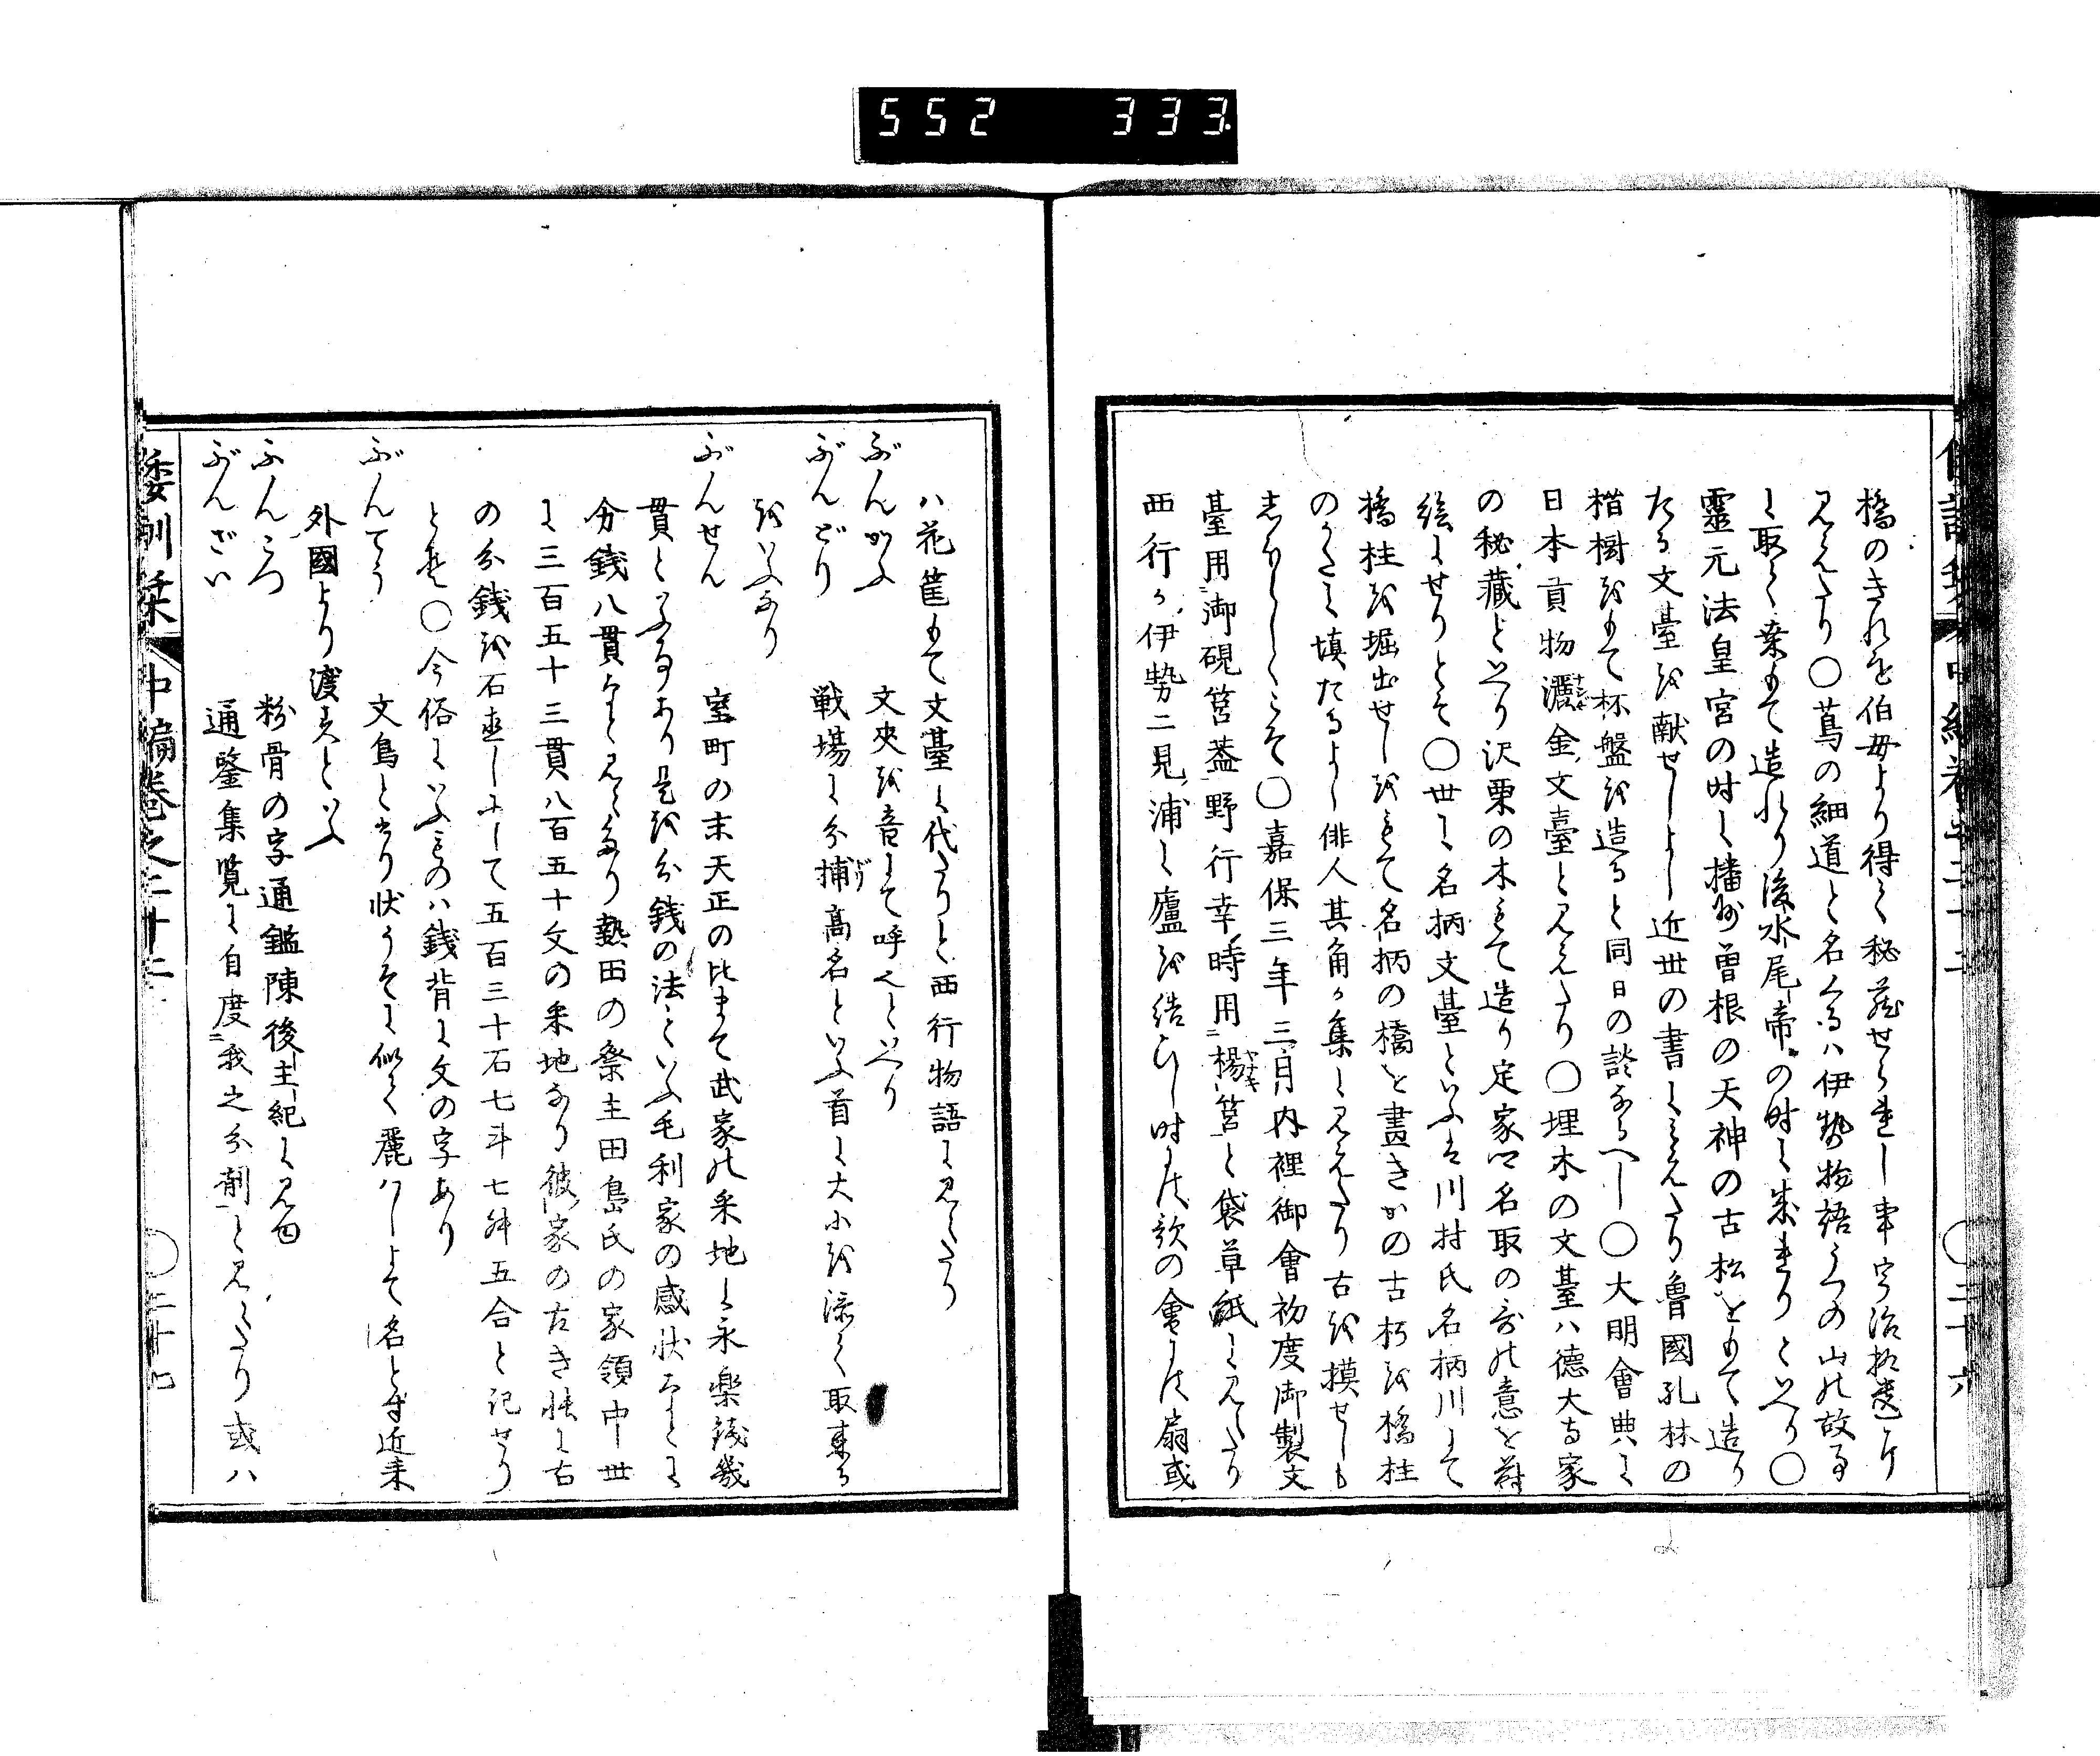 552 333
橋のきれを伯母より得て秘蔵せられし事宇治拾遺に
見えたり○蔦の細道と名くるハ伊勢物語うつの山の故事
に取て桑もて造れり後水尾帝の時に来れりといへり○
靈元法皇宮の時に播州曽根の天神の古松をもて造り
たる文臺を献せしよし近世の書にみえたり魯國孔林の
楷樹をもて杯盤を造ると同日の談なるへし○大明會典に
日本貢物灑金文臺と見えたり○埋木の文臺ハ徳大寺家
の秘藏といへり沢栗の木もて造り定家卿名取の哥の意を蒔
絵にせりとそ○世に名柄文臺といふは川村氏名柄川にて
橋柱を堀出せしをもて名柄の橋を畫きかの古朽を橋柱
のかたに填たるよし俳人其角か集に見えたり古を摸せしも
志ゆしくこそ○嘉保三年三月内裡御會初度御製文
臺用御硯筥蓋野行幸時用楊筥と袋草紙に見えたり
西行か伊勢二見浦に廬を結ひし時には歌の會には扇或
ハ花筐もて文臺に代たりと西行物語に見えたり
ぶんかふ 文夾を音にて呼へといへり
ぶんどり 戦場に分捕高名といふ首に大小を添て取来る
をいふなり
ぶんせん 室町の末天正の比まて武家の采地に永楽銭幾
貫といふ事あり是を分銭の法といふ毛利家の感状なとに
分銭八貫なと見えたり熱田の祭主田島氏の家領中世
に三百五十三貫八百五十文の采地なり彼家の古き帳に右
の分銭を石直しにして五百三十石七斗七舛五合と記せり
とそ○今俗にいふものハ銭背に文の字あり
ぶんてう 文鳥と書り状うそに似て麗ハしよて名とす近来
外國より渡来といふ
ふんこつ 粉骨の字通鑑陳後主紀に見ゆ
ぶんざい 通鑒集覧に自度我之分劑と見えたり或ハ
倭訓栞 中編巻之二十二 ○二十七